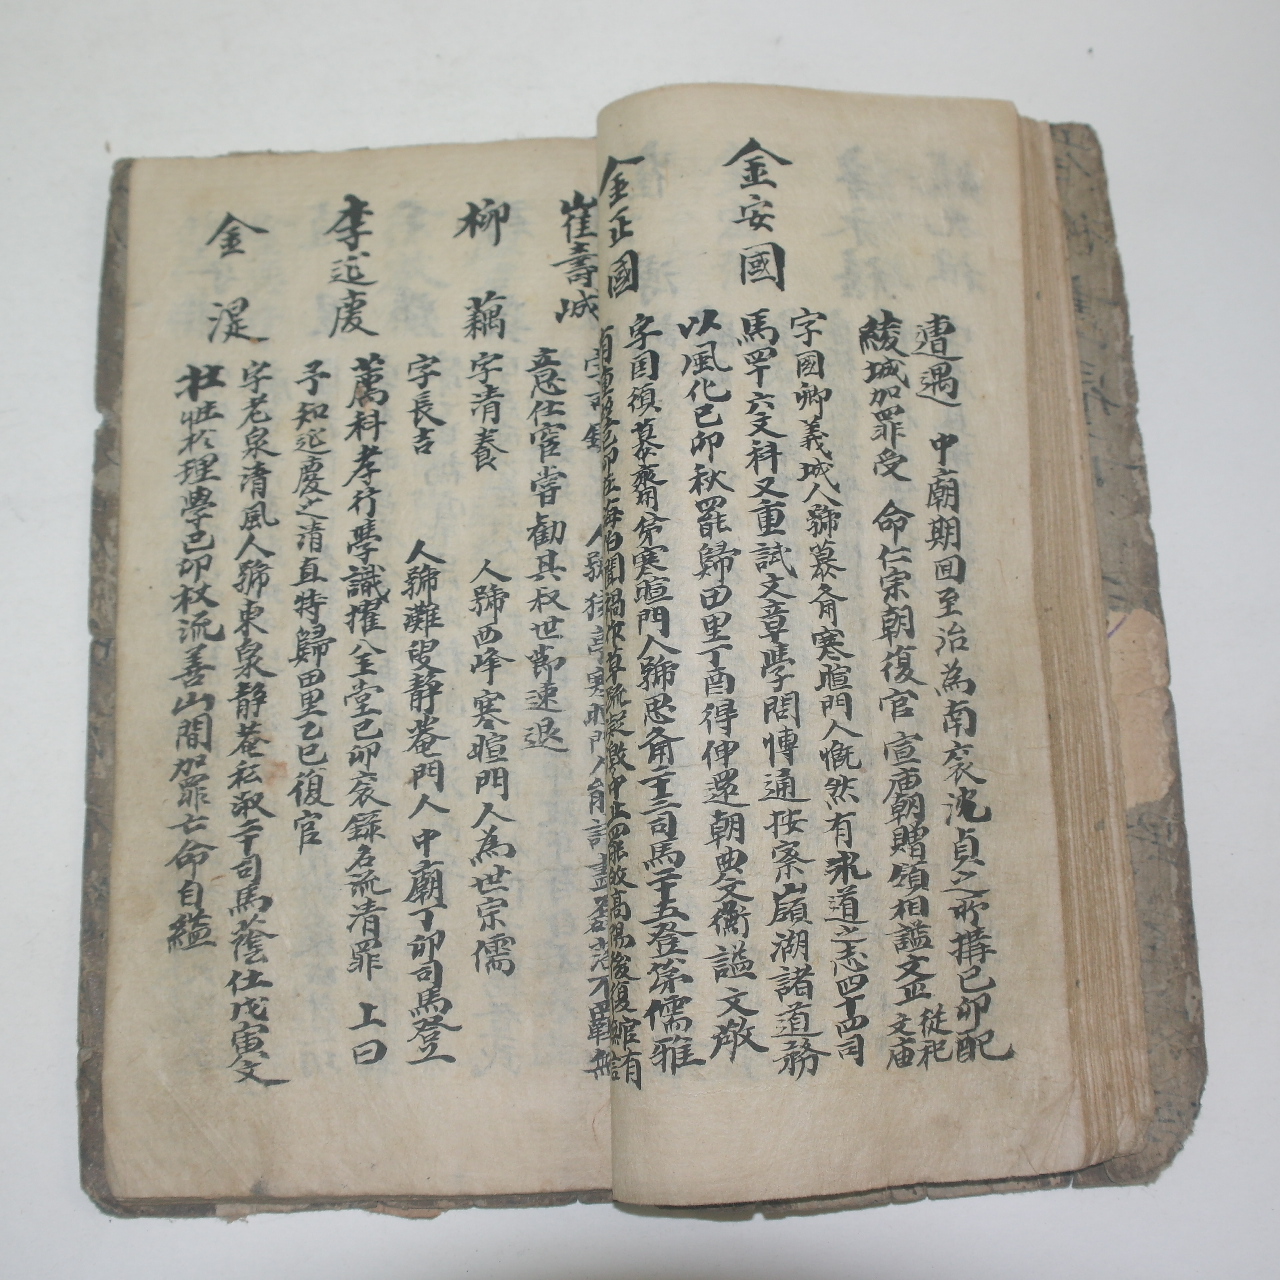 遭遇 中廟期回至治為南袞沈貞之所構己卯配
綾城加罪受 命仁宗朝復官 宣廟朝贈領相謚文正 從祀
文庙
金安國
字國卿義城人號慕斎寒暄門人慨然有求道之志四十四司
馬四十六文科又重試文章學問博通按察嶺湖諸道務
以風化己卯秋罷歸田里丁酉得伸還朝典文衡謚文敬
金正國
字国弼慕齋弟寒暄門人號思斎二十三司馬二十五登第儒雅
崔壽城
意仕宦嘗勸其叔世節速退
柳藕
字清養 人號西峰寒暄門人為世宗儒
李延慶
字長吉 人號灘叟静菴門人中廟丁卯司馬登
薦科孝行學識擢人玉堂己卯袞錄名流清罪 上曰
予知延慶之清直特歸田里乙巳復官
金湜
字老泉清風人號東泉静菴私淑二十司馬蔭仕戊寅文
壯性於理學己卯杖流善山閒加罪亡命自縊